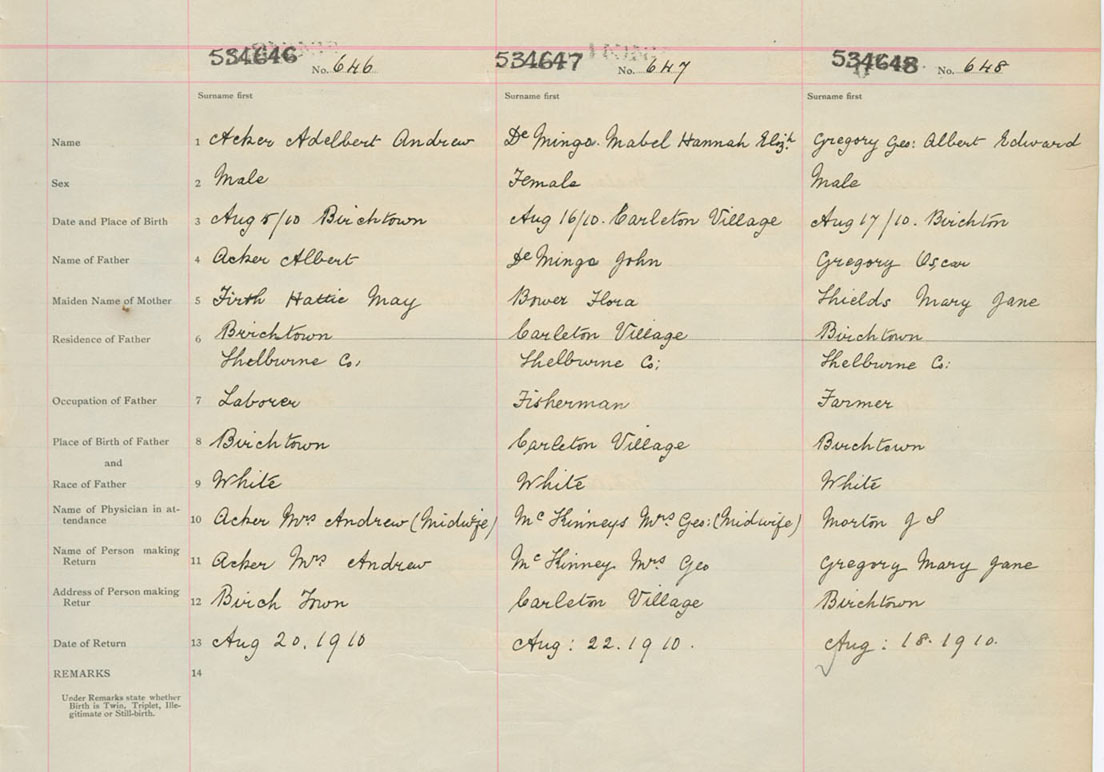 534646 No. 646 534647 No. 647 534648 No. 648
Surname first Surname first Surname first
Name 1 Acker Adelbert Andrew De Minga. Mabel Hannah Elizh Gregory Geo: Albert Edward
Sex 2 Male Female Male
Date and Place of Birth 3 Aug 5/10 Birchtown Aug 16/10. Carleton Village Aug 17/10. Birchton
Name of Father 4 Acker Albert De Minga John Gregory Oscar
Maiden Name of Mother 5 Firth Hattie May Bower Flora Shields Mary Jane
Residence of Father 6 Birchtown Carleton Village Birchtown
Shelburne Co, Shelburne Co: Shelburne Co:
Occupation of Father 7 Laborer Fisherman Farmer
Place of Birth of Father 8 Birchtown Carleton Village Birchtown
and
Race of Father 9 White White White
Name of Physician in at-
tendance 10 Acker Mrs Andrew (Midwife) McKinneys Mrs Geo: (Midwife) Morton J S
Name of Person making
Return 11 Acker Mrs Andrew McKinney Mrs Geo Gregory Mary Jane
Address of Person making
Retur 12 Birch Town Carleton Village Birchtown
Date of Return 13 Aug 20. 1910 Aug: 22. 1910. Aug: 18. 1910.
REMARKS 14
Under Remarks state whether
Birth is Twin, Triplet, Ille-
gitimate or Still-birth.